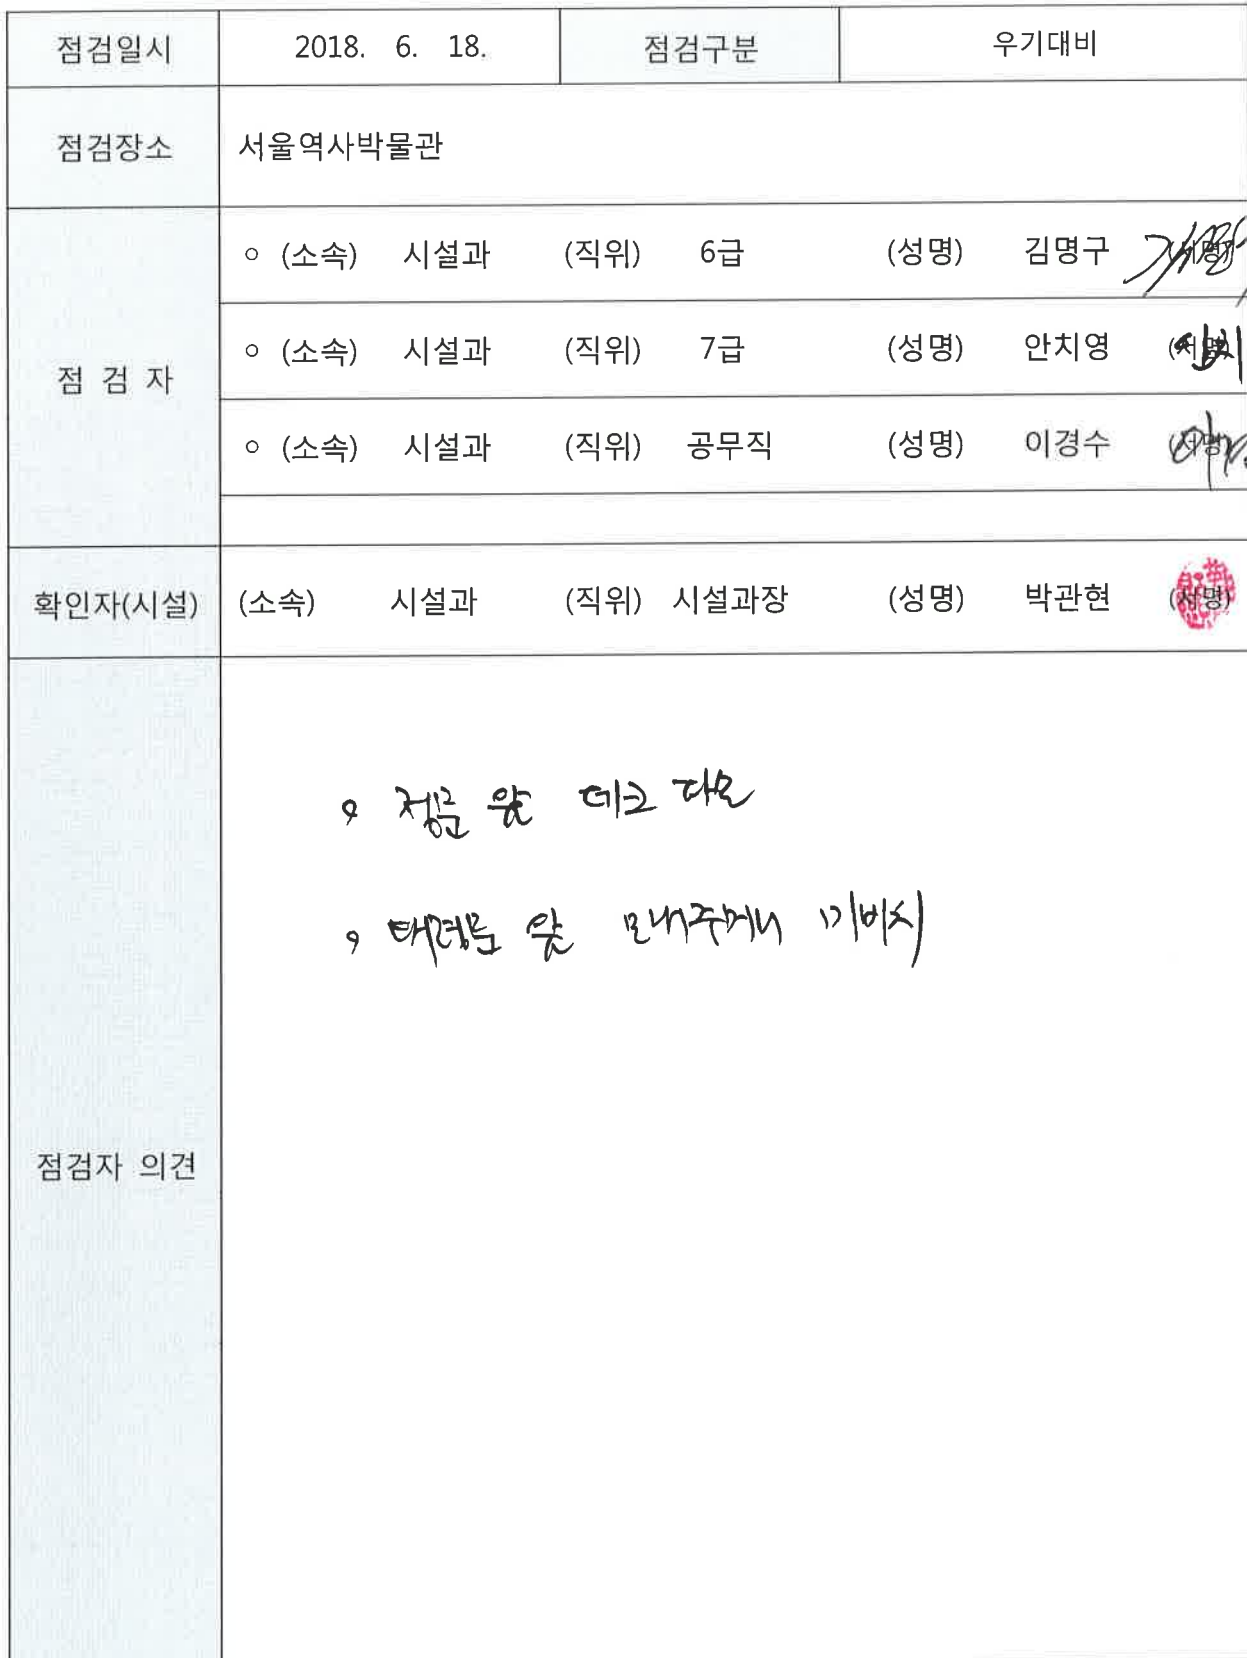 점검일시 2018. 6. 18. 점검구분 우기대비
점검장소 서울역사박물관
점 검 자
○ (소속) 시설과 (직위) 6급 (성명) 김명구 (서명)
○ (소속) 시설과 (직위) 7급 (성명) 안치영 (서명)
○ (소속) 시설과 (직위) 공무직 (성명) 이경수 (서명)
확인자(시설) (소속) 시설과 (직위) 시설과장 (성명) 박관현 (서명)
점검자 의견
정문 앞 데크 파모
태령문 앞 모래주머니 미비치